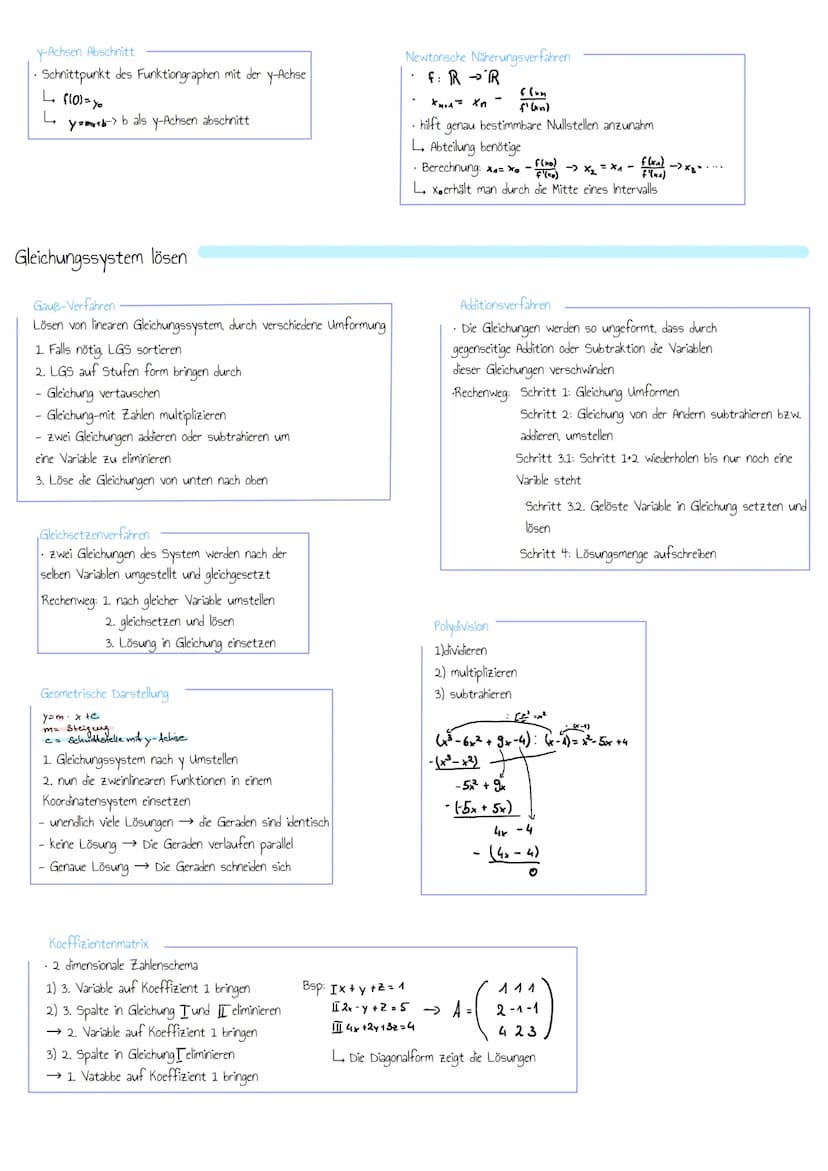 y-Achsen Abschnitt
· Schnittpunkt des Funktiongraphen mit der y-Achse
↳ f(0)=y₀
↳ y=mx+b → b als y-Achsen abschnitt
Newtonsche Näherungsverfahren
· f: ℝ → ℝ
· xₙ₊₁ = xₙ - f(xn / f'(xn)
· hilft genau bestimmbare Nullstellen anzunahm
↳ Abteilung benötige
· Berechnung: x₁ = x₀ - f(x₀)/f'(x₀) → x₂ = x₁ - f(x₁)/f'(x₁) → x₃ = ····
↳ x₀ erhält man durch die Mitte eines Intervalls
Gleichungssystem lösen
Gauß-Verfahren
Lösen von linearen Gleichungssystem, durch verschiedene Umformung
1. Falls nötig, LGS sortieren
2. LGS auf Stufen form bringen durch
- Gleichung vertauschen
- Gleichung-mit Zahlen multiplizieren
- zwei Gleichungen addieren oder subtrahieren um
eine Variable zu eliminieren
3. Löse die Gleichungen von unten nach oben
Additionsverfahren
· Die Gleichungen werden so ungeformt, dass durch
gegenseitige Addition oder Subtraktion die Variablen
dieser Gleichungen verschwinden
·Rechenweg: Schritt 1: Gleichung Umformen
Schritt 2: Gleichung von der Andern subtrahieren bzw.
addieren, umstellen
Schritt 3.1: Schritt 1+2 wiederholen bis nur noch eine
Varible steht
Schritt 3.2. Gelöste Variable in Gleichung setzten und
lösen
Schritt 4: Lösungsmenge aufschreiben
Gleichsetzenverfahren
· zwei Gleichungen des System werden nach der
selben Variablen umgestellt und gleichgesetzt
Rechenweg: 1. nach gleicher Variable umstellen
2. gleichsetzen und lösen
3. Lösung in Gleichung einsetzen
Polydivision
1)dividieren
2) multiplizieren
3) subtrahieren
=x²
·(x-1)
(x³-6x²+9x-4):(x-1)=x²-5x+4
-(x³-x²)
-5x²+9x
-(-5x+5x)
4x -4
-(4x-4)
0
Geometrische Darstellung
y=m·x+c
m= Steigung
c= Schnittstelle mit y-Achse
1. Gleichungssystem nach y Umstellen
2. nun die zweinlinearen Funktionen in einem
Koordinatensystem einsetzen
- unendlich viele Lösungen → die Geraden sind identisch
- keine Lösung → Die Geraden verlaufen parallel
- Genaue Lösung → Die Geraden schneiden sich
Koeffizientenmatrix
· 2 dimensionale Zahlenschema
1) 3. Variable auf Koeffizient 1 bringen
2) 3. Spalte in Gleichung I und II eliminieren
→ 2. Variable auf Koeffizient 1 bringen
3) 2. Spalte in Gleichung I eliminieren
→ 1. Vatabbe auf Koeffizient 1 bringen
Bsp: I x+y+z=1
II 2x-y+z=5 → A =
III 4x+2y+3z=4
1 1 1
2 -1 -1
4 2 3
↳ Die Diagonalform zeigt die Lösungen